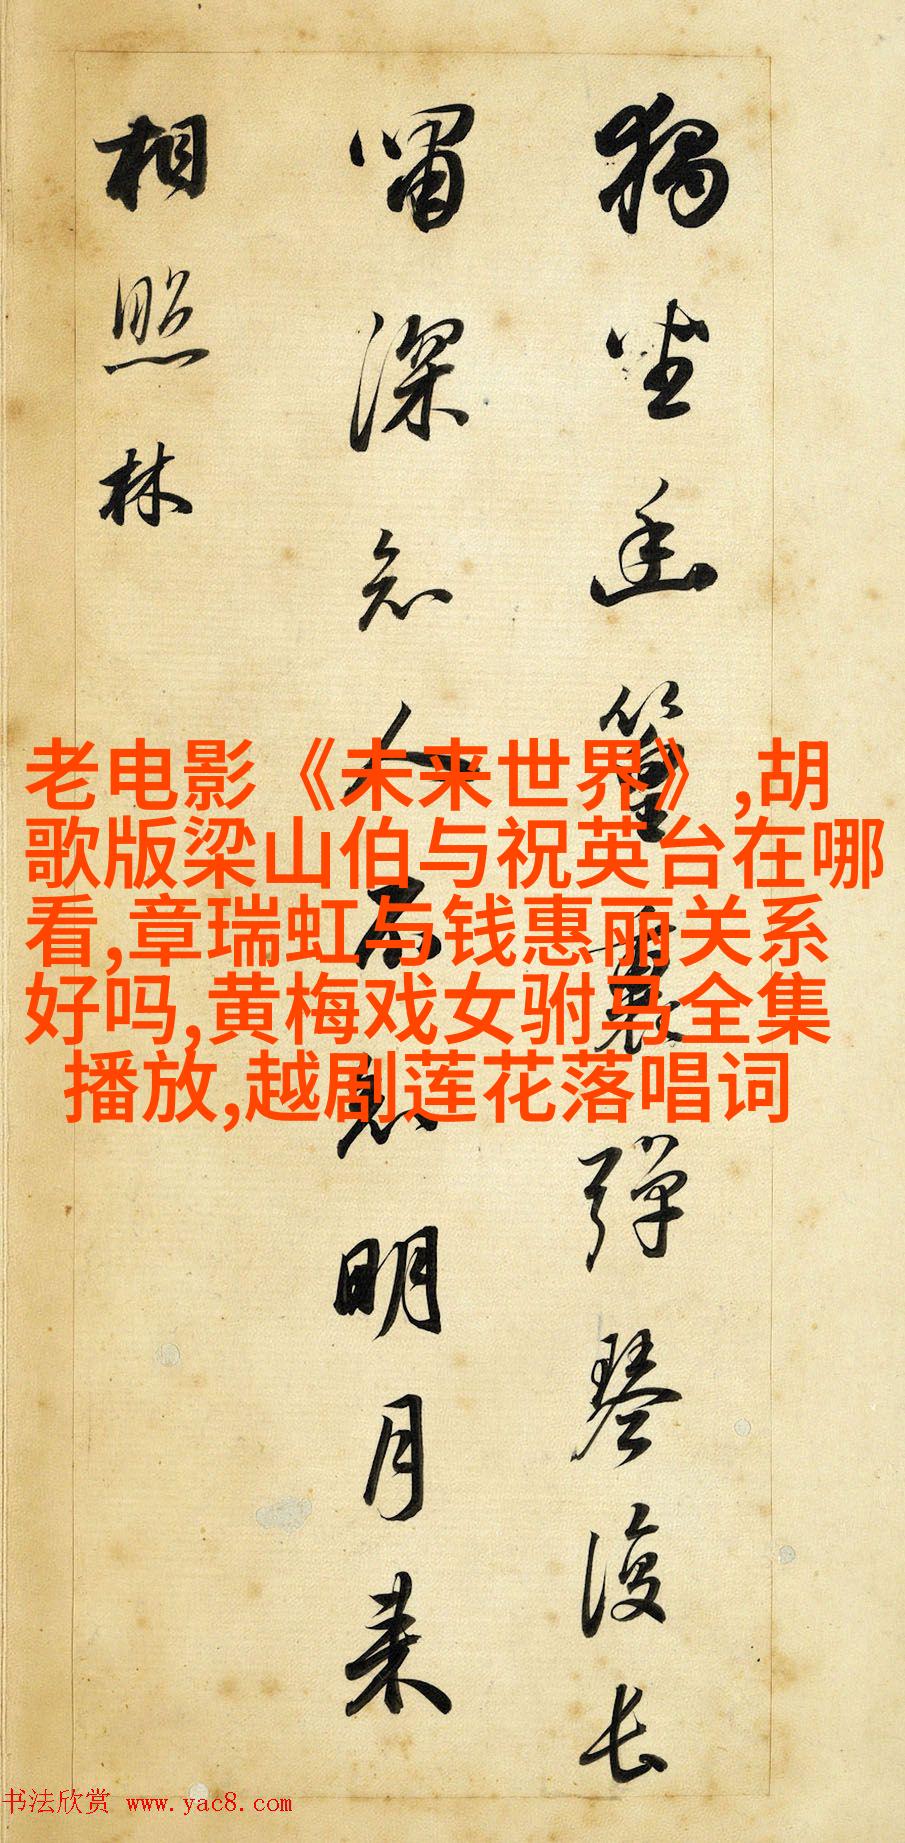 獨坐幽篁裏彈琴復長
嘯深人不知明月来
相照林
老电影《未来世界》,胡
歌版梁山伯与祝英台在哪
看,章瑞虹与钱惠丽关系
好吗,黄梅戏女驸马全集
播放,越剧莲花落唱词
书法欣赏 www.yac8.com